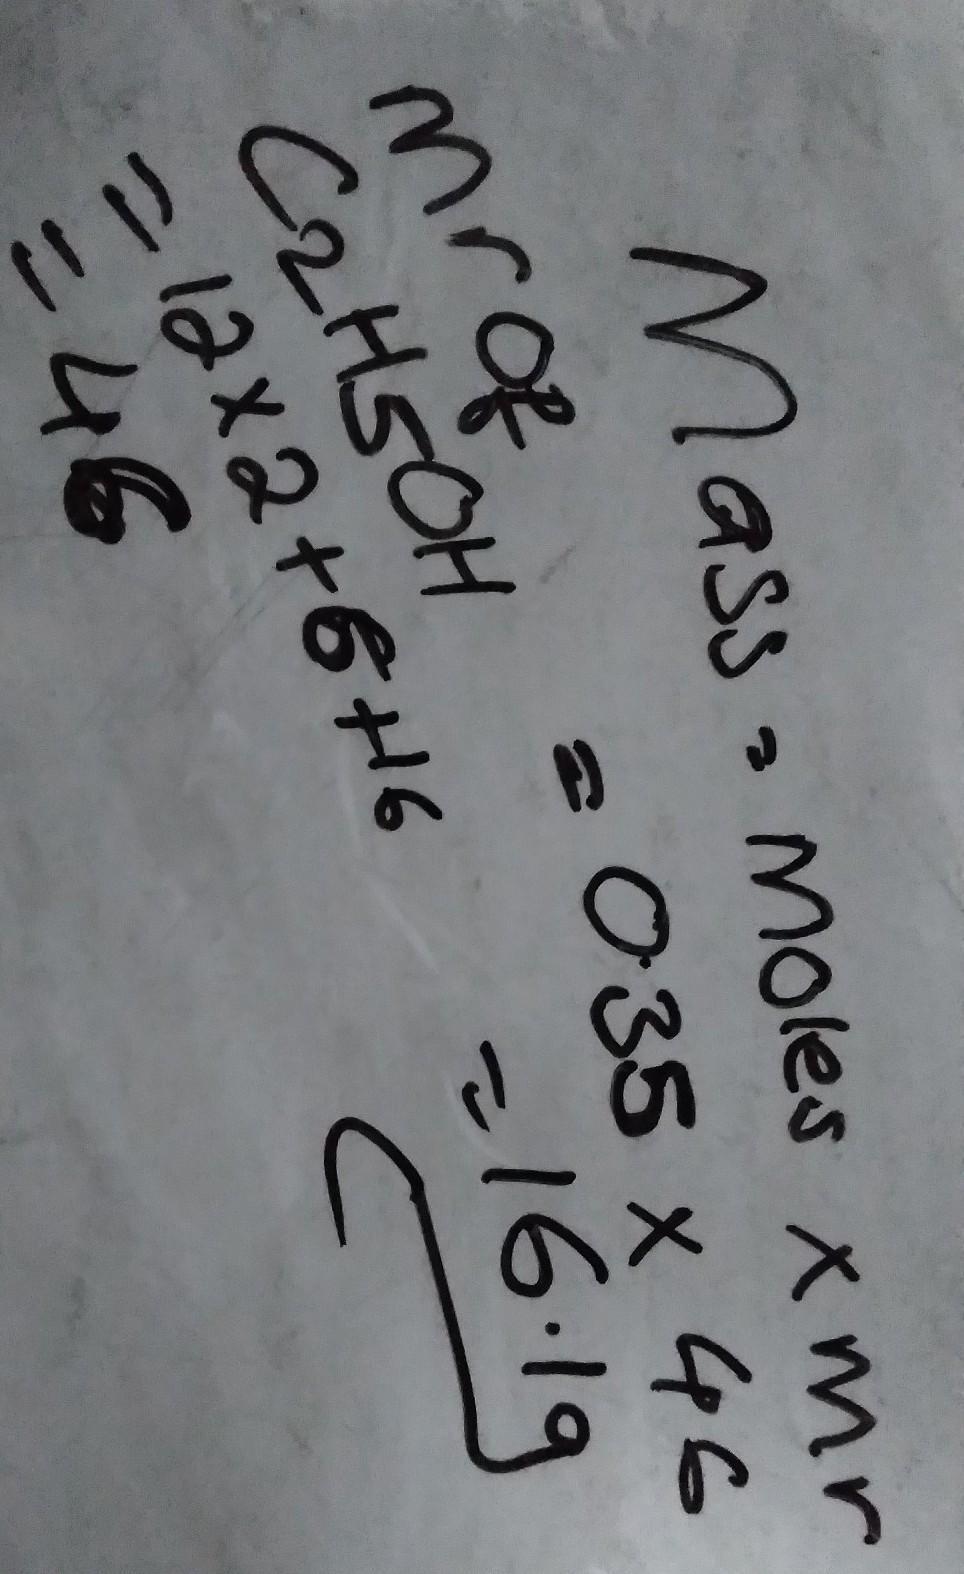 Mass = moles x Mr
= 0.35 x 46
= 16.1g
Mr of
C2H5OH
= 12 x 2 + 6 + 16
= 46